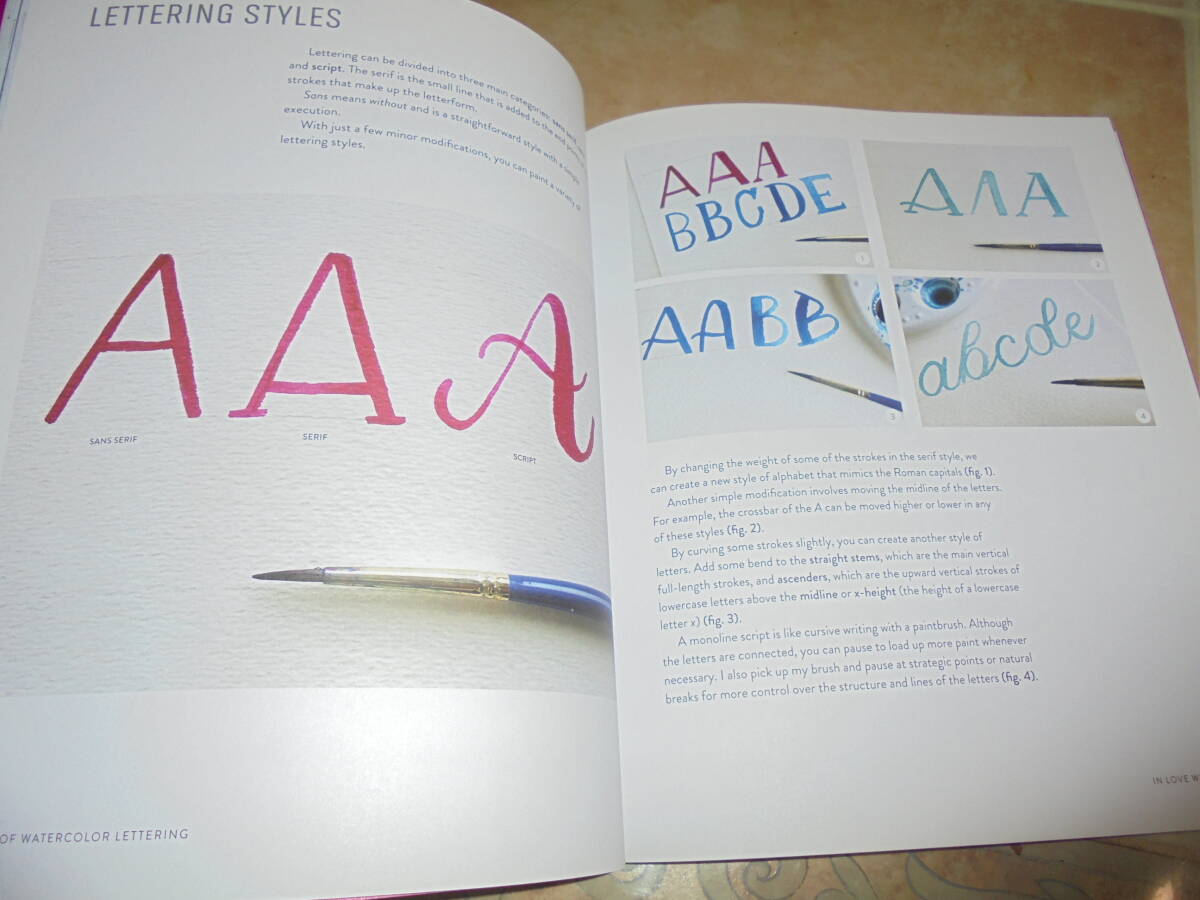 LETTERING STYLES
Lettering can be divided into three main categories: sans serif,
and script. The serif is the small line that is added to the end
strokes that make up the letterform.
Sans means without and is a straightforward style with a simple
execution.
With just a few minor modifications, you can paint a variety of
lettering styles.
A A A
SANS SERIF
SERIF
SCRIPT
OF WATERCOLOR LETTERING
A A A
B B C D E
1
A A A
2
A A B B
3
abcde
4
By changing the weight of some of the strokes in the serif style, we
can create a new style of alphabet that mimics the Roman capitals (fig. 1).
Another simple modification involves moving the midline of the letters.
For example, the crossbar of the A can be moved higher or lower in any
of these styles (fig. 2).
By curving some strokes slightly, you can create another style of
letters. Add some bend to the straight stems, which are the main vertical
full-length strokes, and ascenders, which are the upward vertical strokes of
lowercase letters above the midline or x-height (the height of a lowercase
letter x) (fig. 3).
A monoline script is like cursive writing with a paintbrush. Although
the letters are connected, you can pause to load up more paint whenever
necessary. I also pick up my brush and pause at strategic points or natural
breaks for more control over the structure and lines of the letters (fig. 4).
IN LOVE W